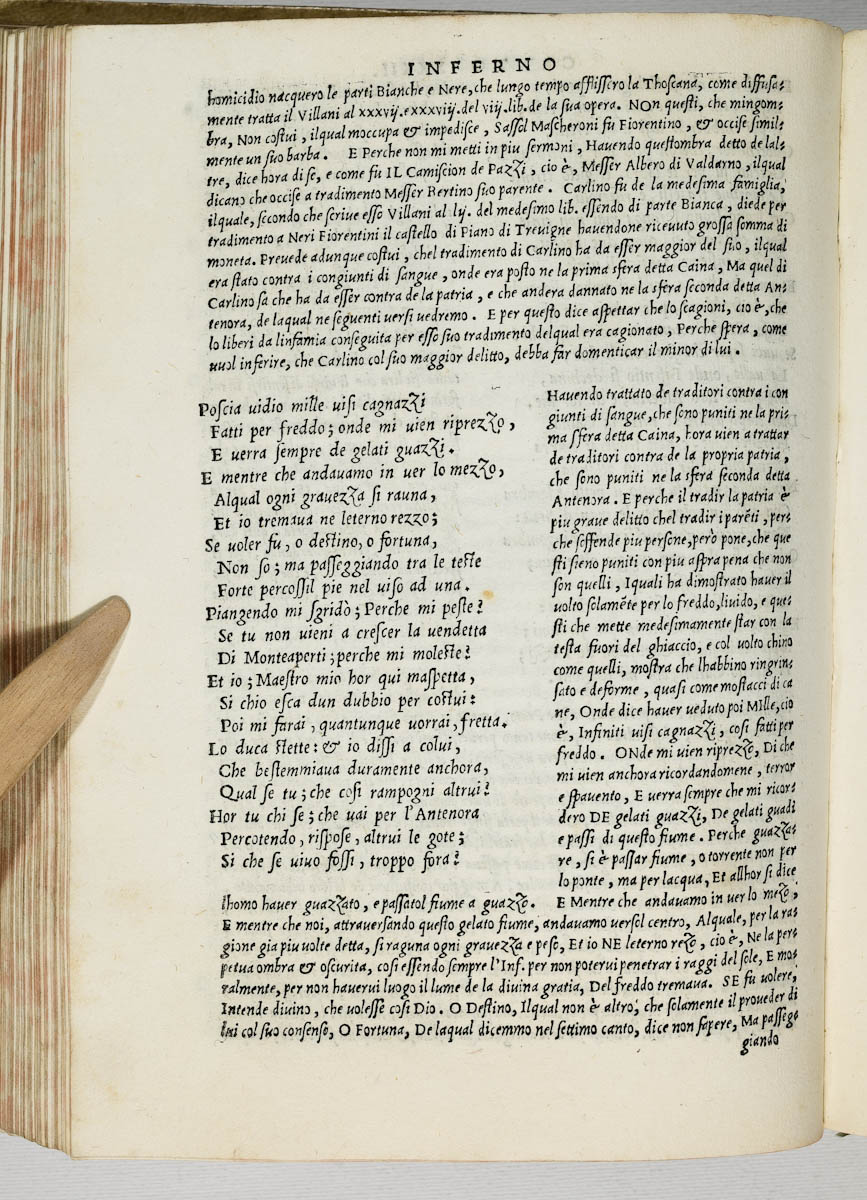 INFERNO
homicidio nacquero le parti Bianche e Nere, che lungo tempo afflissero la Thoscana, come diffusa-
mente tratta il Villani al xxxvij. e xxxviij. del viij. lib. de la sua opera. NOn questi, che mingom-
bra, Non costui, ilqual moccupa & impedisce, Sassol Mascheroni fu Fiorentino, & occise simil-
mente un suo barba. E Perche non mi metti in piu sermoni, Hauendo questombra detto de lal-
tre, dice hora di se, e come fu IL Camiscion de Pazzi, cio è, Messer Albero di Valdarno, ilqual
dicano che occise a tradimento Messer Bertino suo parente. Carlino fu de la medesima famiglia,
ilquale, secondo che scriue esso Villani al lij. del medesimo lib. essendo di parte Bianca, diede per
tradimento a Neri Fiorentini il castello di Piano di Treuigne hauendone riceuuto grossa somma di
moneta. Preuede adunque costui, chel tradimento di Carlino ha da esser maggior del suo, ilqual
era stato contra i congiunti di sangue, onde era posto ne la prima sfera detta Caina, Ma quel di
Carlino sa che ha da esser contra de la patria, e che andera dannato ne la sfera seconda detta An-
tenora, de laqual ne seguenti uersi uedremo. E per questo dice aspettar che lo scagioni, cio è, che
lo liberi da linfamia conseguita per esso suo tradimento delqual era cagionato, Perche spera, come
uuol inferire, che Carlino col suo maggior delitto, debba far domenticar il minor di lui.
Poscia uidio mille uisi cagnazzi
Fatti per freddo; onde mi uien riprezzo,
E uerra sempre de gelati guazzi.
E mentre che andauamo in uer lo mezzo,
Alqual ogni grauezza si rauna,
Et io tremaua ne leterno rezzo;
Se uoler fu, o destino, o fortuna,
Non so; ma passeggiando tra le teste
Forte percossil pie nel uiso ad una.
Piangendo mi sgridò; Perche mi peste?
Se tu non uieni a crescer la uendetta
Di Monteaperti; perche mi moleste?
Et io; Maestro mio hor qui maspetta,
Si chio esca dun dubbio per costui:
Poi mi farai, quantunque uorrai, fretta.
Lo duca stette: & io dissi a colui,
Che bestemmiaua duramente anchora,
Qual se tu; che cosi rampogni altrui?
Hor tu chi se; che uai per l'Antenora
Percotendo, rispose, altrui le gote;
Si che se uiuo fossi, troppo fora?
Hauendo trattato de traditori contra i con
giunti di sangue, che sono puniti ne la pri-
ma sfera detta Caina, hora uien a trattar
de traditori contra de la propria patria,
che sono puniti ne la sfera seconda detta
Antenora. E perche il tradir la patria è
piu graue delitto chel tradir i parēti, per-
che soffende piu persone, però pone, che que
sti sieno puniti con piu aspra pena che non
son quelli, I quali ha dimostrato hauer il
uolto solamēte per lo freddo, liuido, e que-
sti che mette medesimamente star con la
testa fuori del ghiaccio, e col uolto chino
come quelli, mostra che lhabbino ringrin-
sato e deforme, quasi come mostacci di ca
ne, Onde dice hauer ueduto poi MIlle, cio
è, Infiniti uisi cagnazzi, cosi fatti per
freddo. ONde mi uien riprezzo, Di che
mi uien anchora ricordandomene, terror
e spauento, E uerra sempre che mi ricor-
dero DE gelati guazzi, De gelati guadi
e passi di questo fiume. Perche guazza-
re, si è passar fiume, o torrente non per
lo ponte, ma per lacqua, Et allhor si dice
lhomo hauer guazzato, e passatol fiume a guazzo. E Mentre che andauamo in uer lo mezo,
E mentre che noi, attrauersando questo gelato fiume, andauamo uersol centro, Alquale, per la ra-
gione gia piu uolte detta, si raguna ogni grauezza e peso, Et io NE leterno rezo, cio è, Ne la per-
petua ombra & oscurita, cosi essendo sempre l'Inf. per non poterui penetrar i raggi del sole, E mo-
ralmente, per non hauerui luogo il lume de la diuina gratia, Del freddo tremaua. SE fu uolere,
Intende diuino, che uolesse cosi Dio. O Destino, Ilqual non è altro, che solamente il proueder di
lui col suo consenso, O Fortuna, De laqual dicemmo nel settimo canto, dice non sapere, Ma passeg-
giando